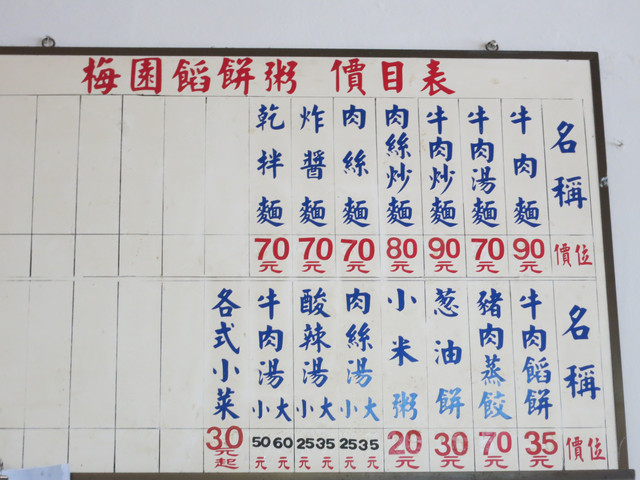 梅園餡餅粥 價目表
名稱 價位
牛肉麵 90元
牛肉湯麵 70元
牛肉炒麵 90元
肉絲炒麵 80元
肉絲麵 70元
炸醬麵 70元
乾拌麵 70元
名稱 價位
牛肉餡餅 35元
豬肉蒸餃 70元
葱油餅 30元
小米粥 20元
肉絲湯 小大 25元 35元
酸辣湯 小大 25元 35元
牛肉湯 小大 50元 60元
各式小菜 30元起